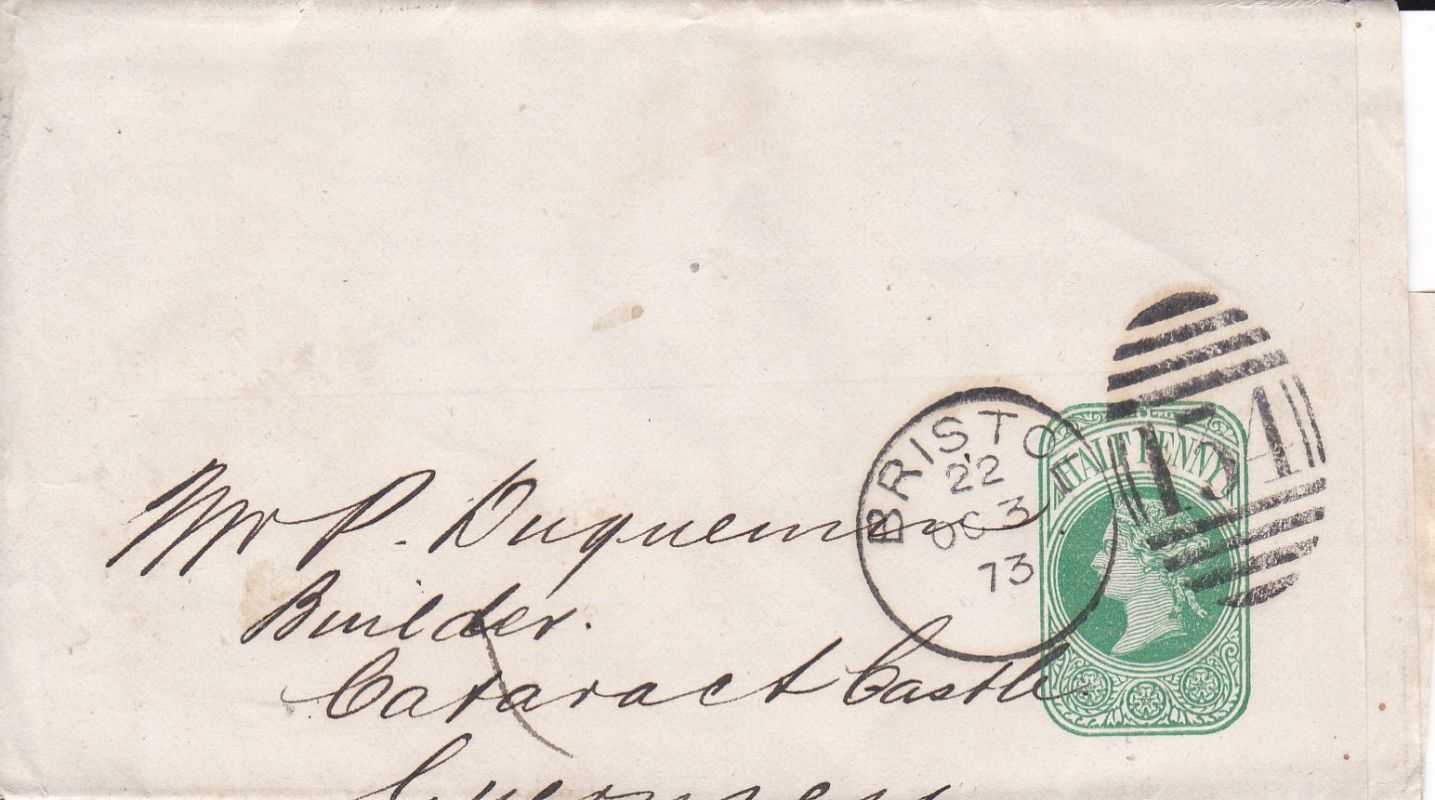 HALFPENNY
134
BRISTOL
22
OC 3
73
Mr P. Duquemin
Builder.
Cataract Castle.
Guernsey